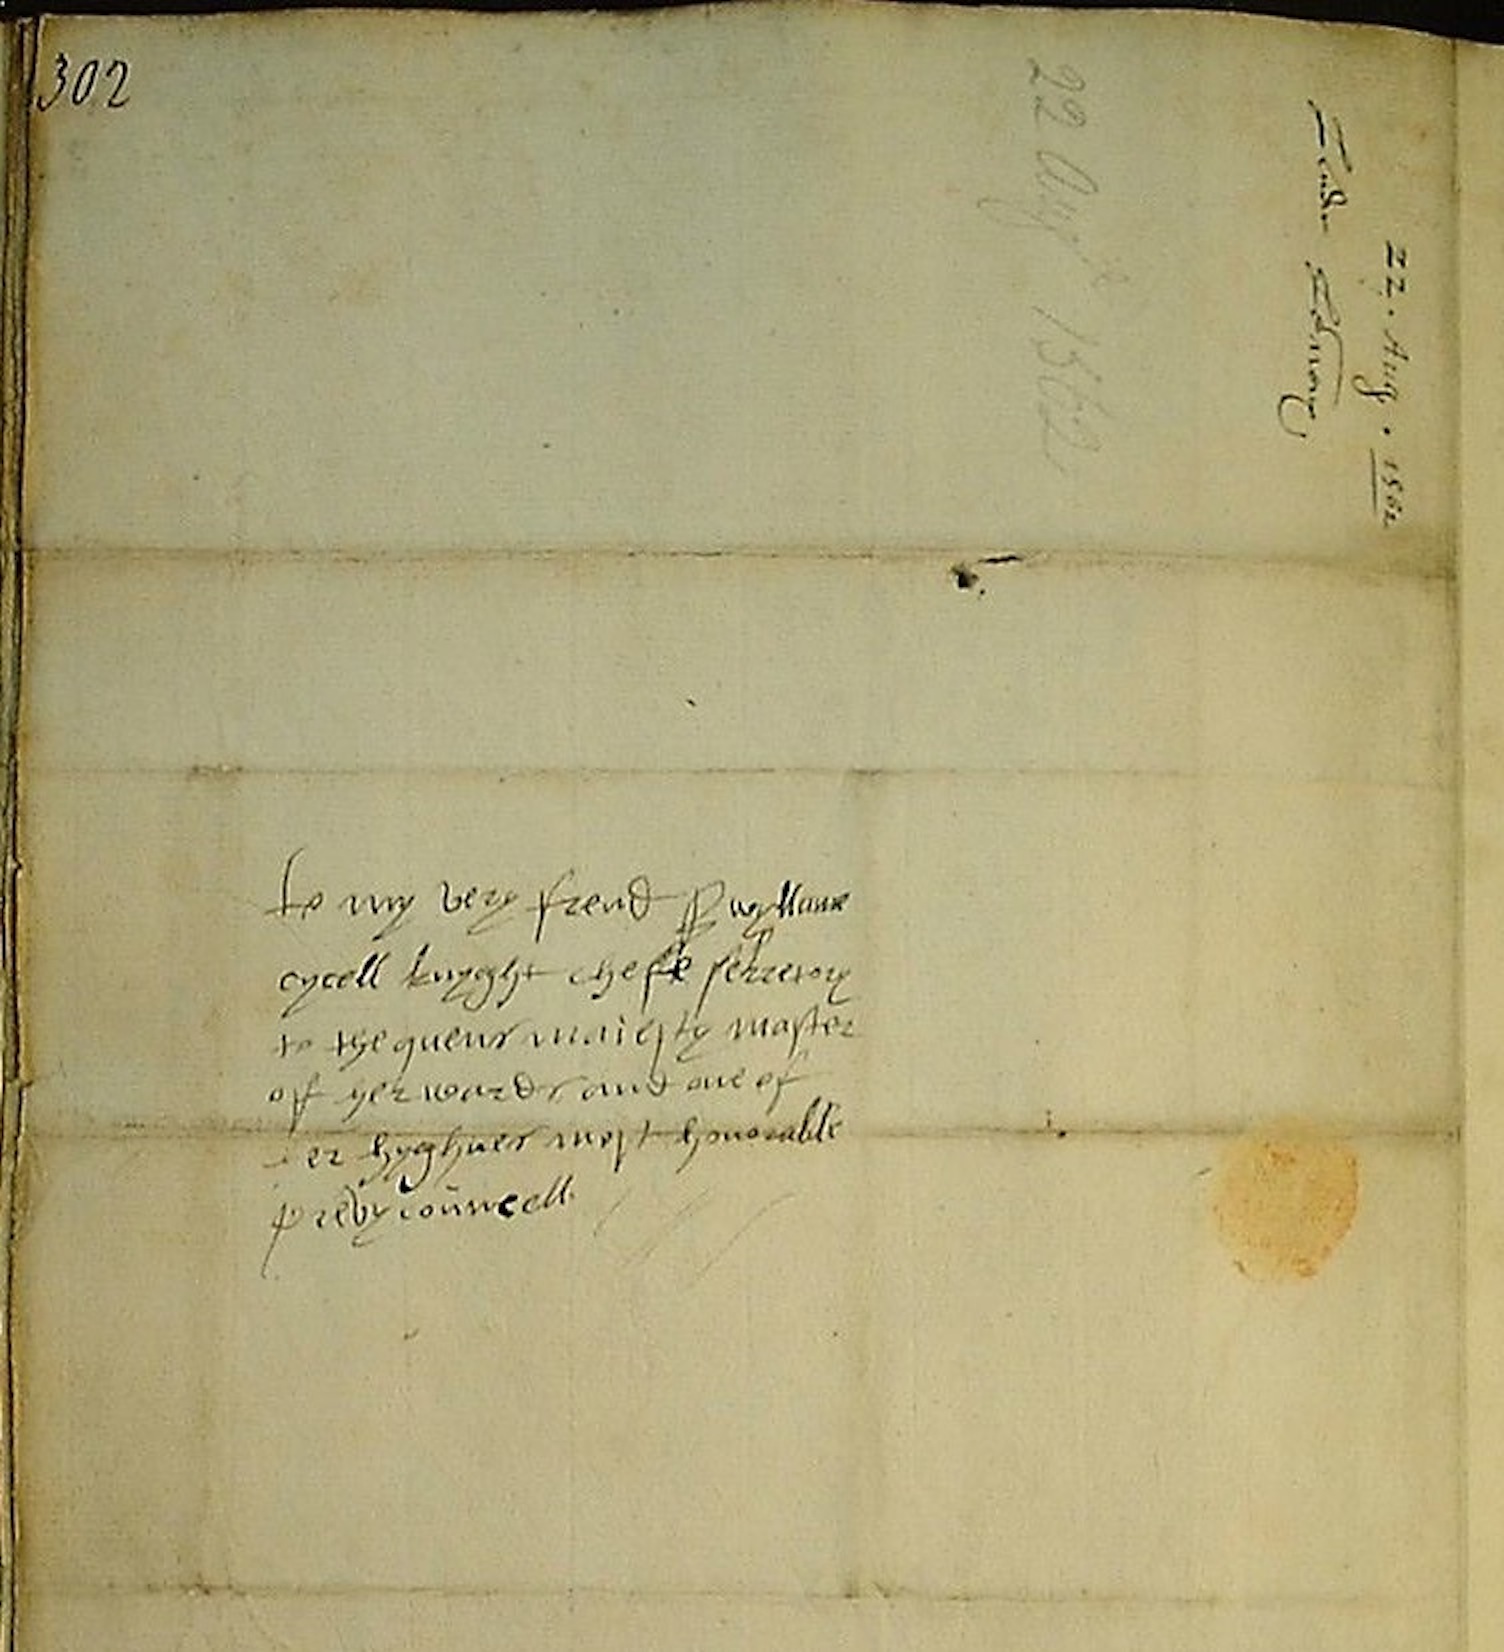 302
22 Aug 1562
22. Aug. 1562
to my very frend Sr wyllame
cycell knyght chefe secretory
to the quens maiesty master
off her wards and one of
her hyghnes most honorable
prevy councell